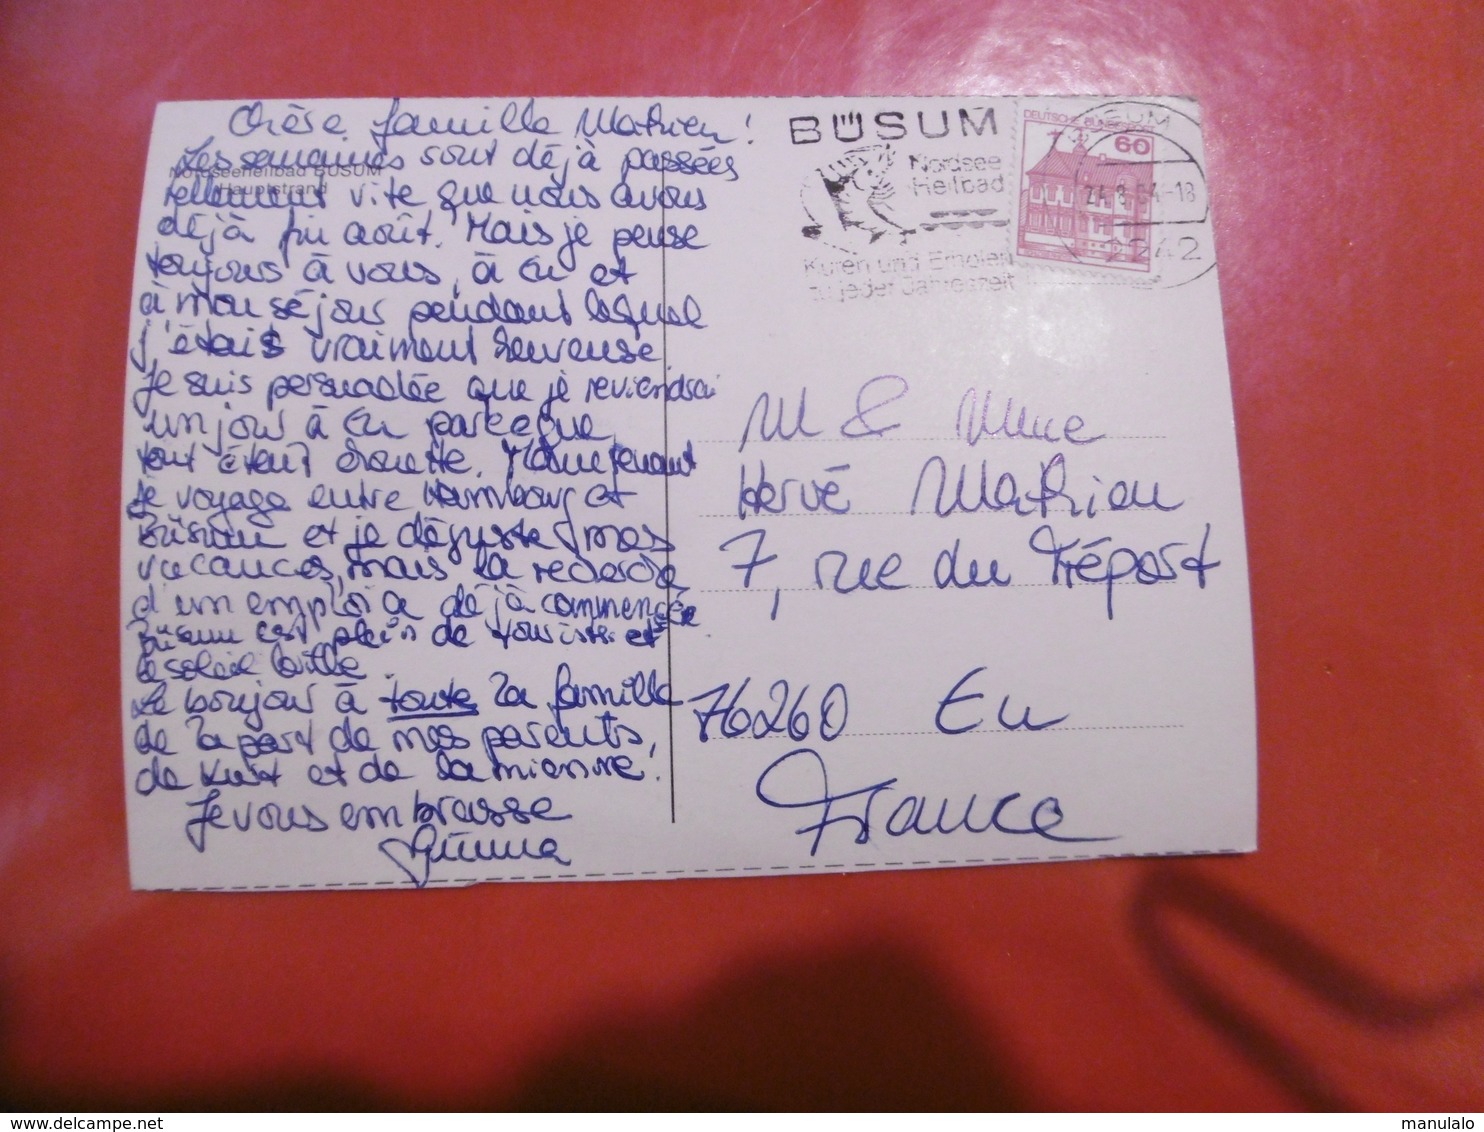 Chère famille Mathieu!
Les semaines sont déjà passées
Nordseeheilbad BÜSUM
Hauptstrand
tellement vite que nous avons
déjà fin août. Mais je pense
toujours à vous, à Eu et
à mon séjour pendant lequel
j'étais vraiment heureuse
Je suis persuadée que je reviendrai
un jour à Eu parce que
tout était chouette. Maintenant
je voyage entre Hambourg et
Büsum et je déguste mes
vacances, mais la recherche
d'un emploi a déjà commencée
Büsum est plein de touristes et
le soleil brille.
Le bonjour à toute la famille
de la part de mes parents,
de Kurt et de la mienne!
Je vous embrasse
BÜSUM
Nordsee
Heilbad
Kuren und Erholen
zu jeder Jahreszeit
DEUTSCHE BUNDESPOST
60
24.8.84-18
2242
M & Mme
Hervé Mathieu
7, rue du Tréport
76260 Eu
France
www.delcampe.net
manulalo